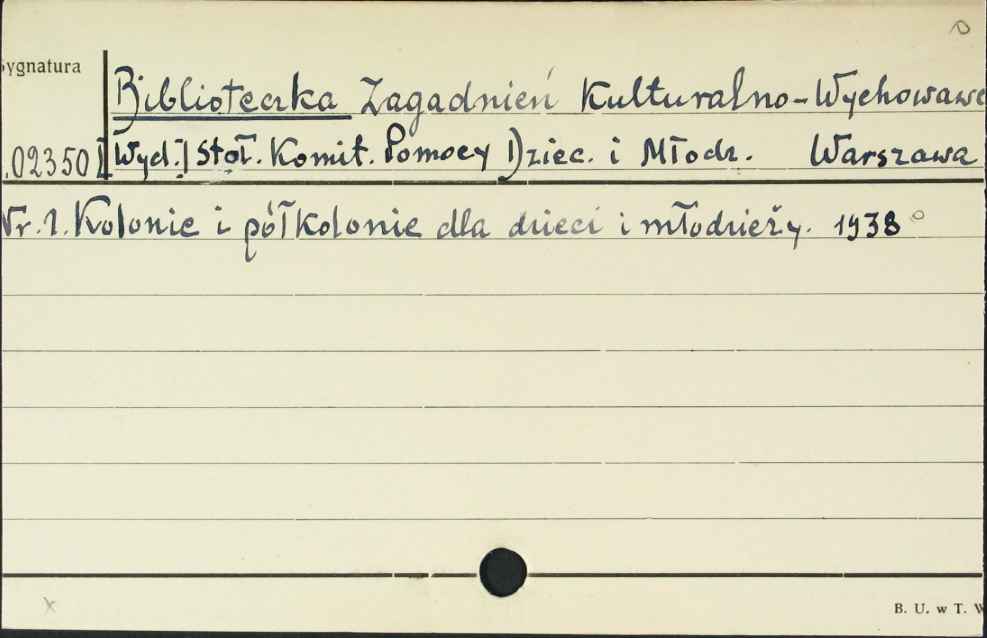 Sygnatura
Biblioteczka Zagadnień Kulturalno-Wychowawc
.02350 [Wyd.:] Stoł. Komit. Pomocy Dziec. i Młodz. Warszawa
Nr. 1. Kolonie i półkolonie dla dzieci i młodzieży. 1938
B. U. w T.